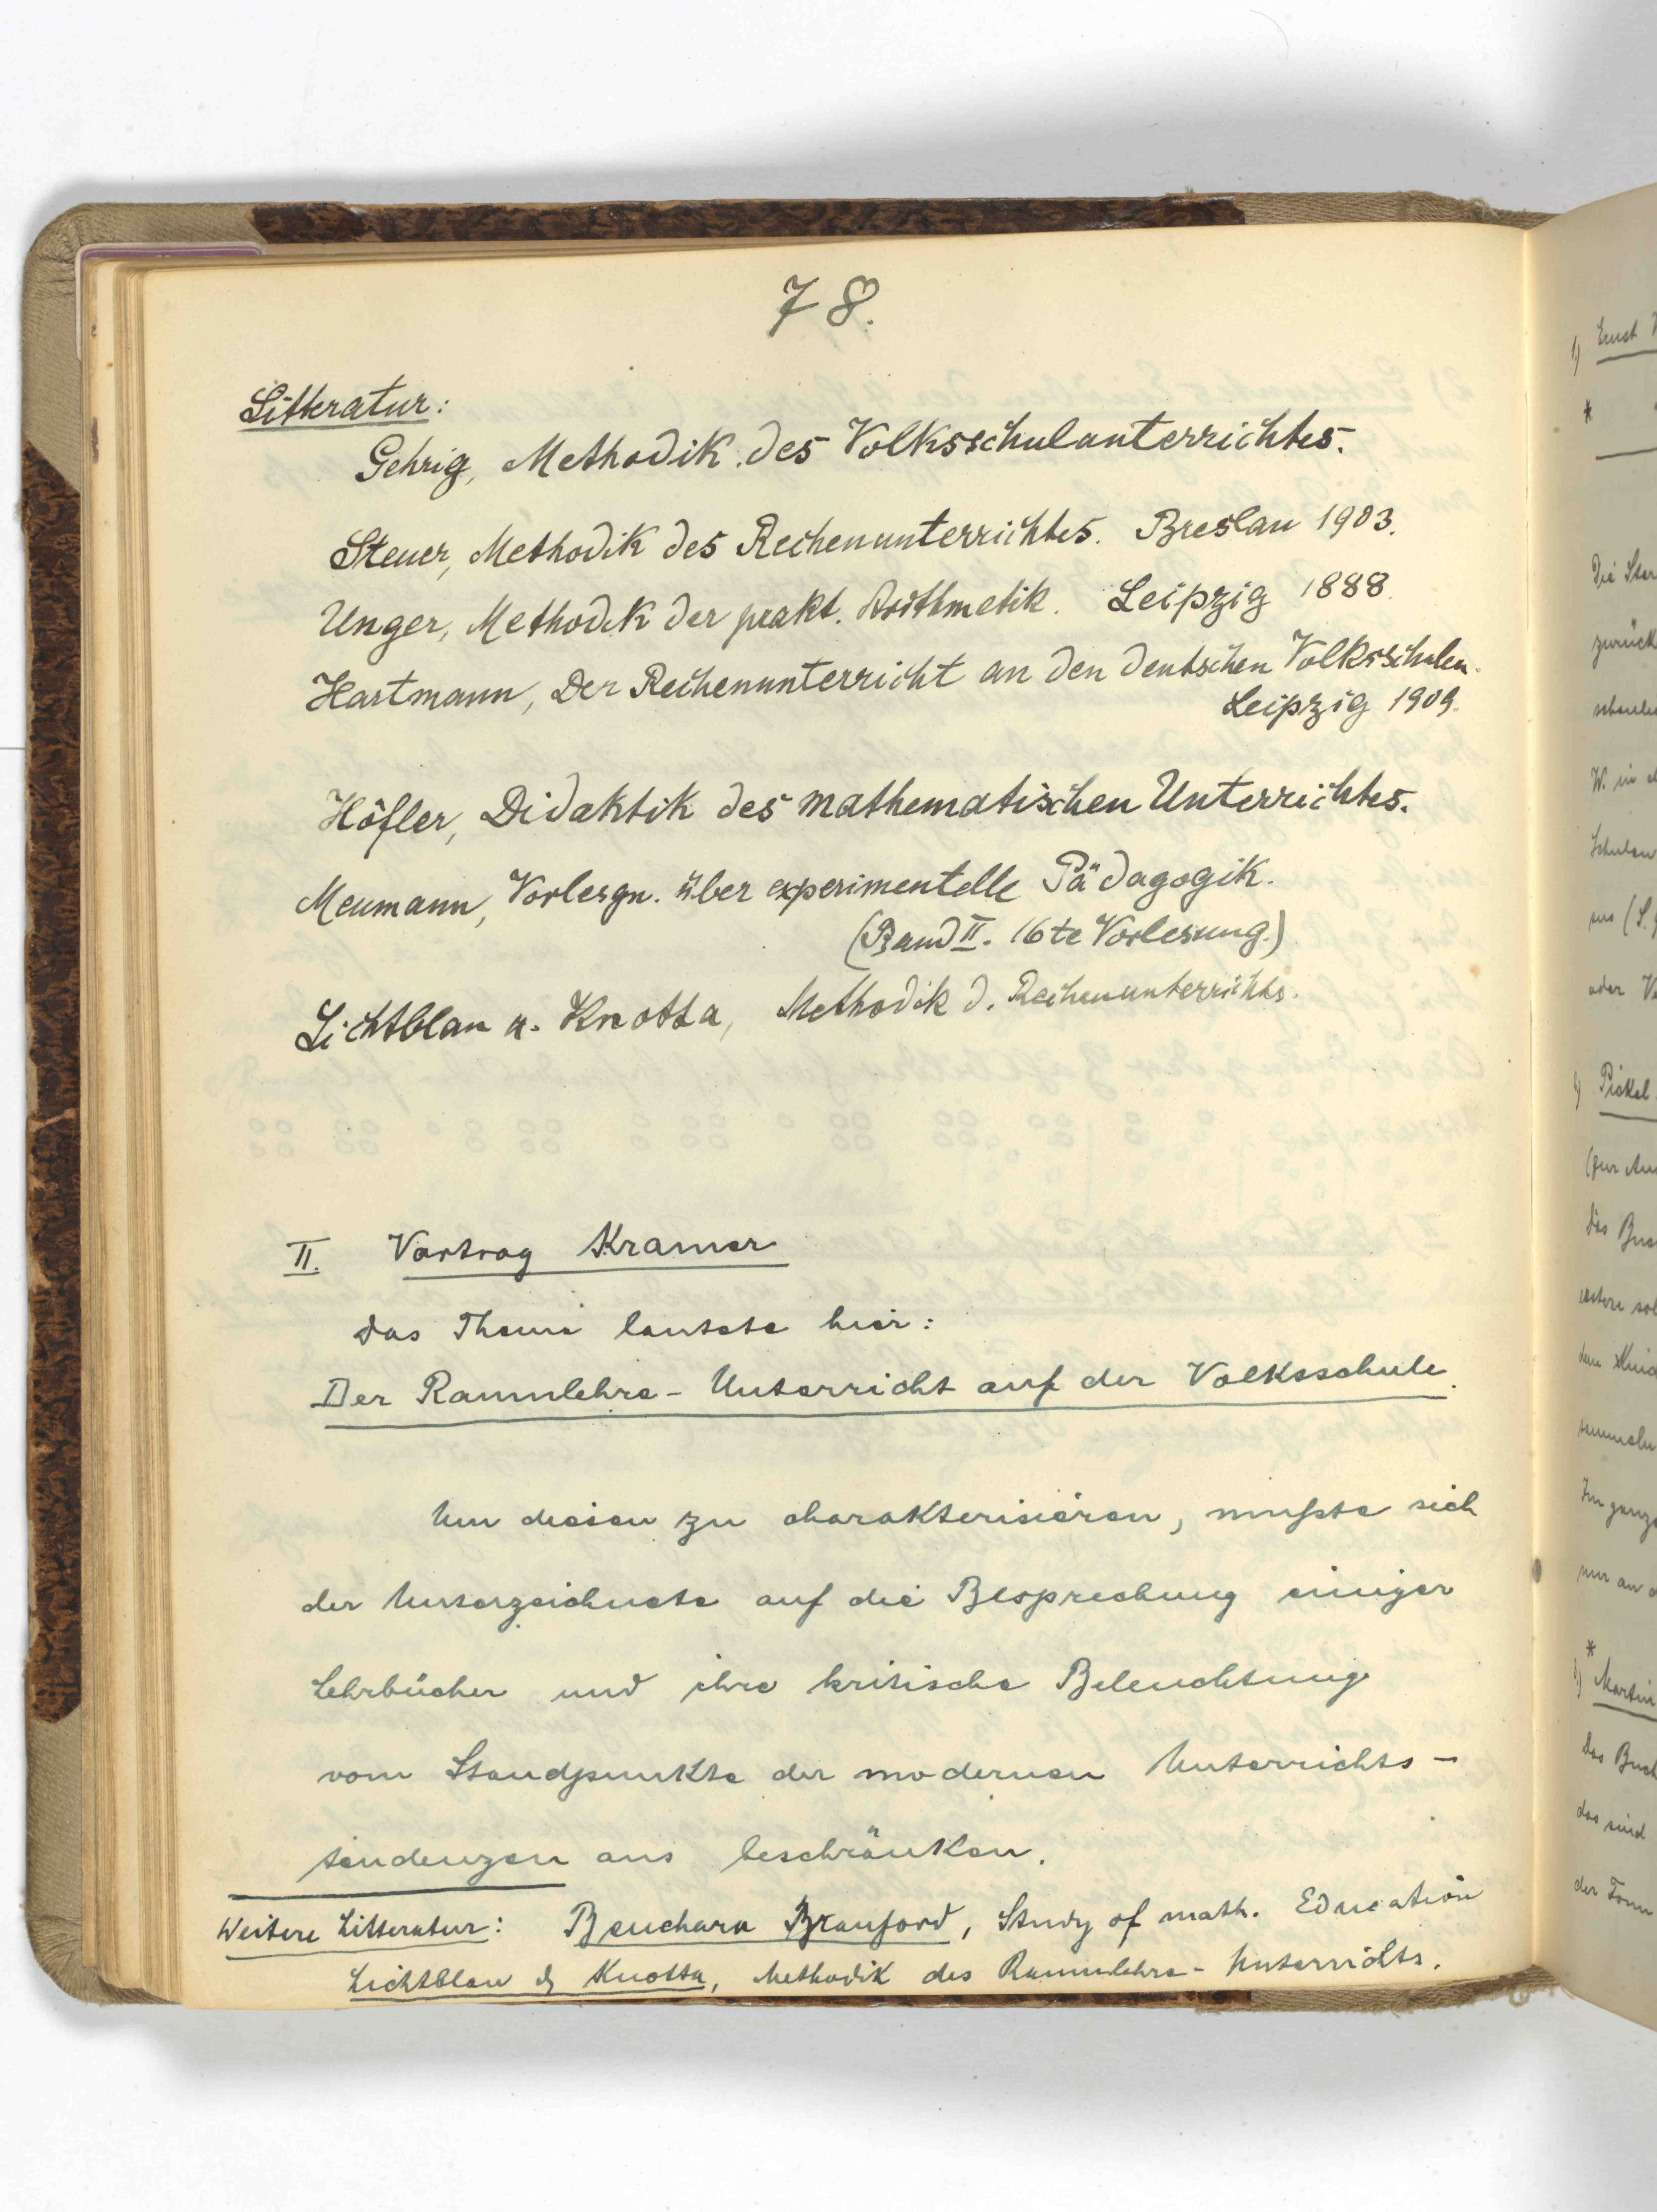 78.
Litteratur:
Gehrig, Methodik des Volksschulunterrichtes.
Steuer, Methodik des Rechenunterrichtes. Breslau 1903.
Unger, Methodik der prakt. Arithmetik. Leipzig 1888.
Hartmann, Der Rechenunterricht an den deutschen Volksschulen.
Leipzig 1909.
Höfler, Didaktik des mathematischen Unterrichtes.
Meumann, Vorlesgn. über experimentelle Pädagogik.
(Band II. 16te Vorlesung.)
Lichtblau u. Knotta, Methodik d. Rechenunterrichts.
II. Vortrag Kramer
Das Thema lautete hier:
Der Raumlehre-Unterricht auf der Volksschule.
Um diesen zu charakterisieren, mußte sich
der Unterzeichnete auf die Besprechung einiger
Lehrbücher und ihre kritische Beleuchtung
vom Standpunkte der modernen Unterrichts-
tendenzen aus beschränken.
Weitere Litteratur: Benchara Branford, Study of math. Education
Lichtblau & Knotta, Methodik des Raumlehre-Unterrichts.
1) Ernst
*
Die
zurück
W. in
Schulen
oder
Pickel
(Zur
das
*
Martin
Das Buch
das sind
der Form